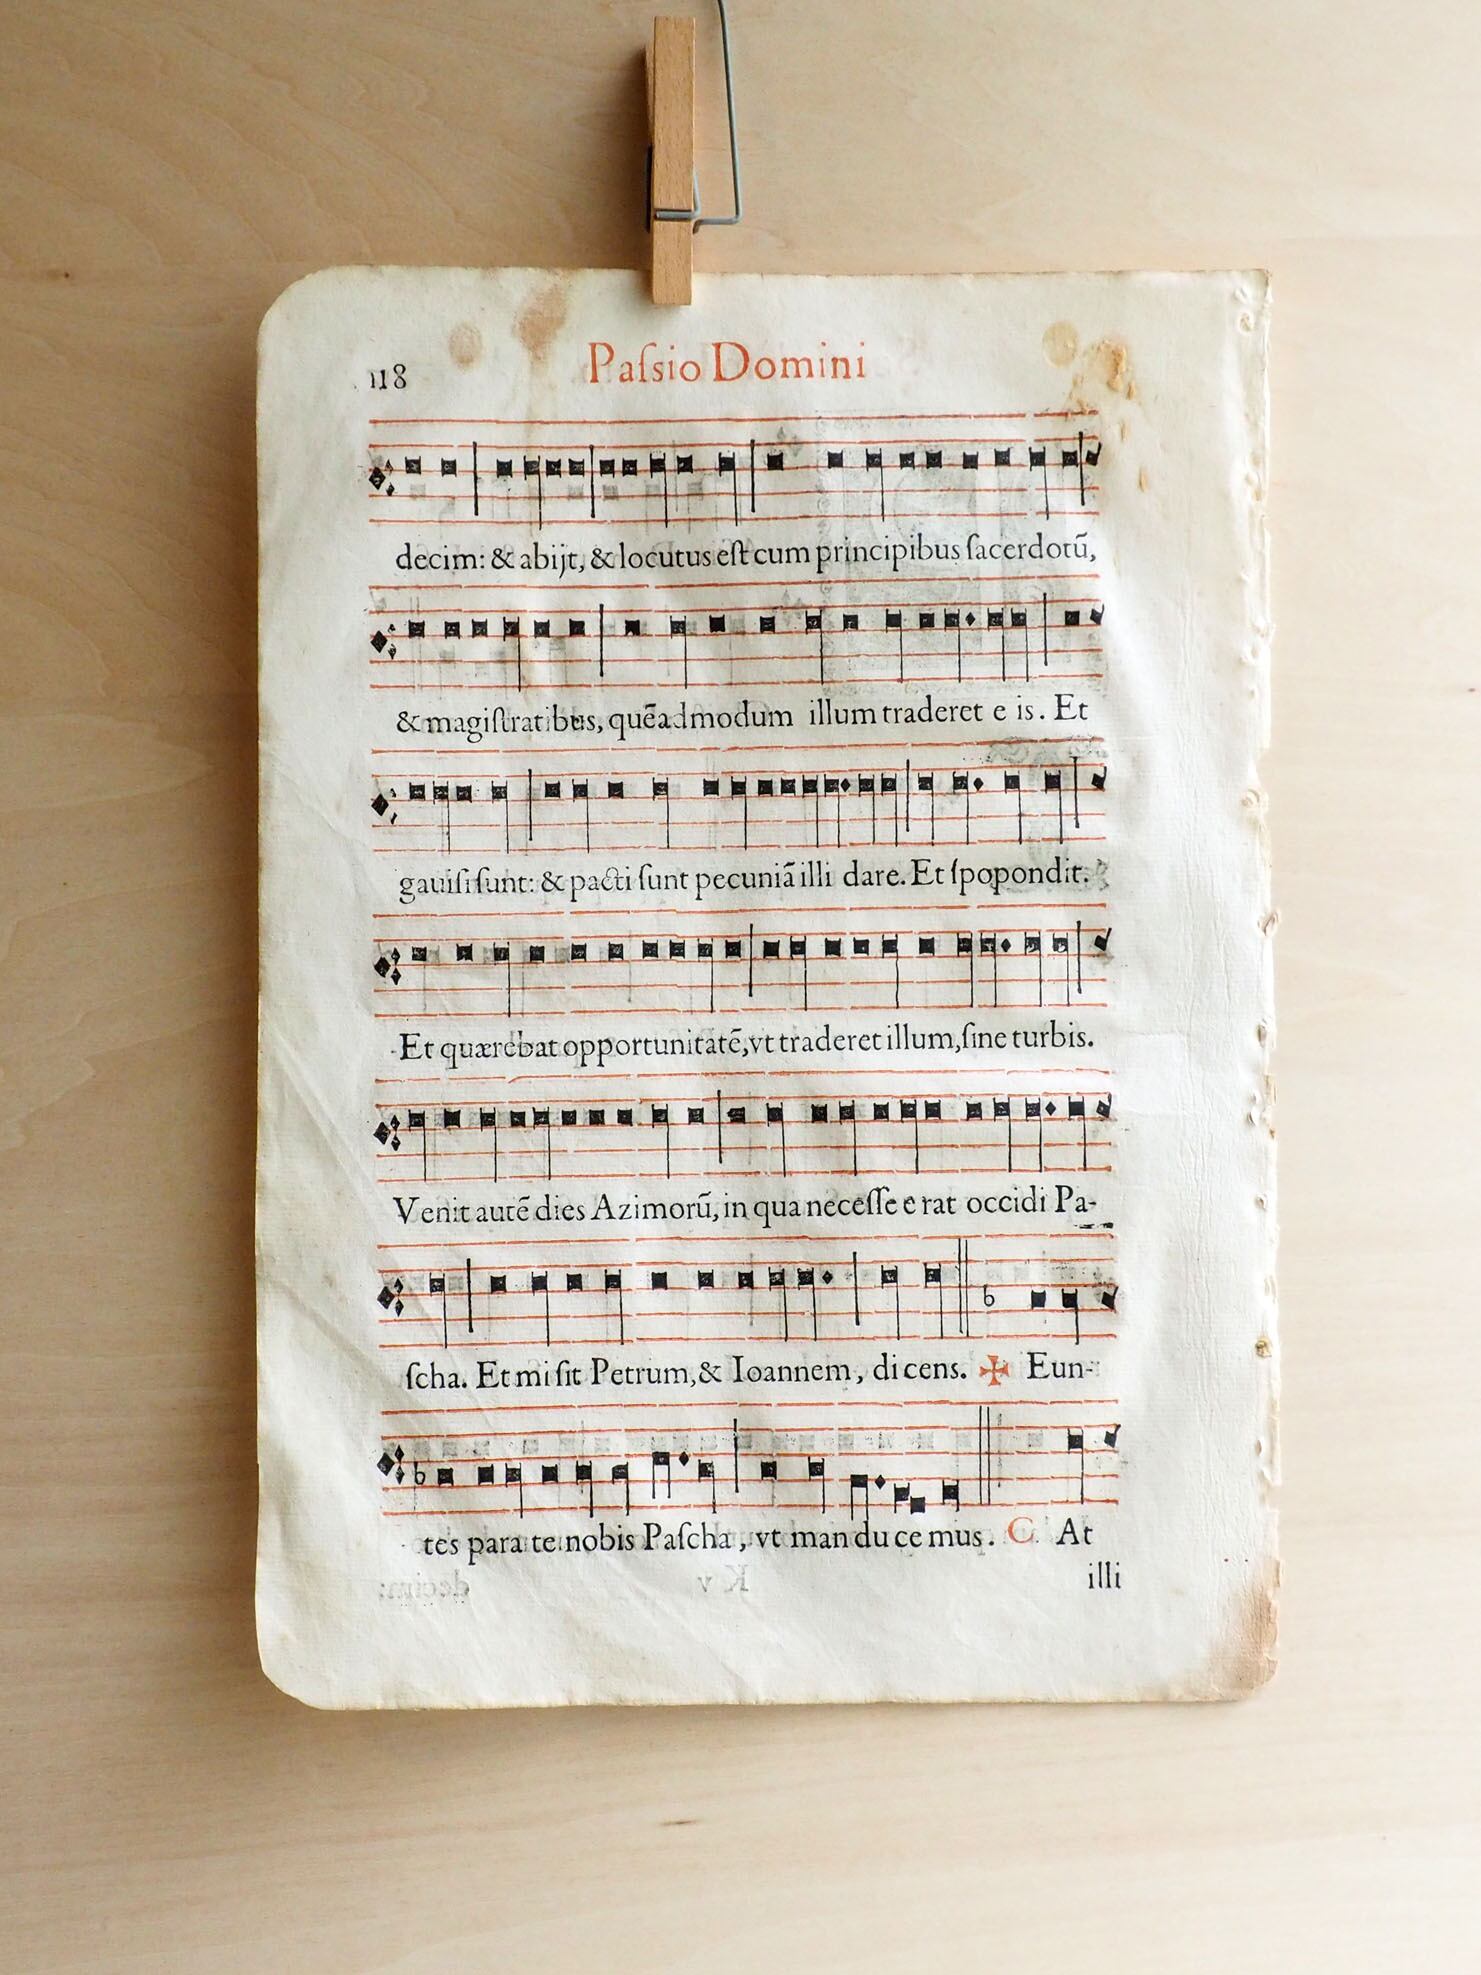 118 Paſsio Domini
decim: & abijt, & locutus eſt cum principibus ſacerdotū,
& magiſtratibus, quēadmodum illum traderet e is. Et
gauiſi ſunt: & pacti ſunt pecuniā illi dare. Et ſpopondit.
Et quærebat opportunitatē, vt traderet illum, ſine turbis.
Venit autē dies Azimorū, in qua neceſſe e rat occidi Pa-
ſcha. Et mi ſit Petrum, & Ioannem, di cens. ✠ Eun-
tes para te nobis Paſcha, vt man du ce mus. C. At
illi